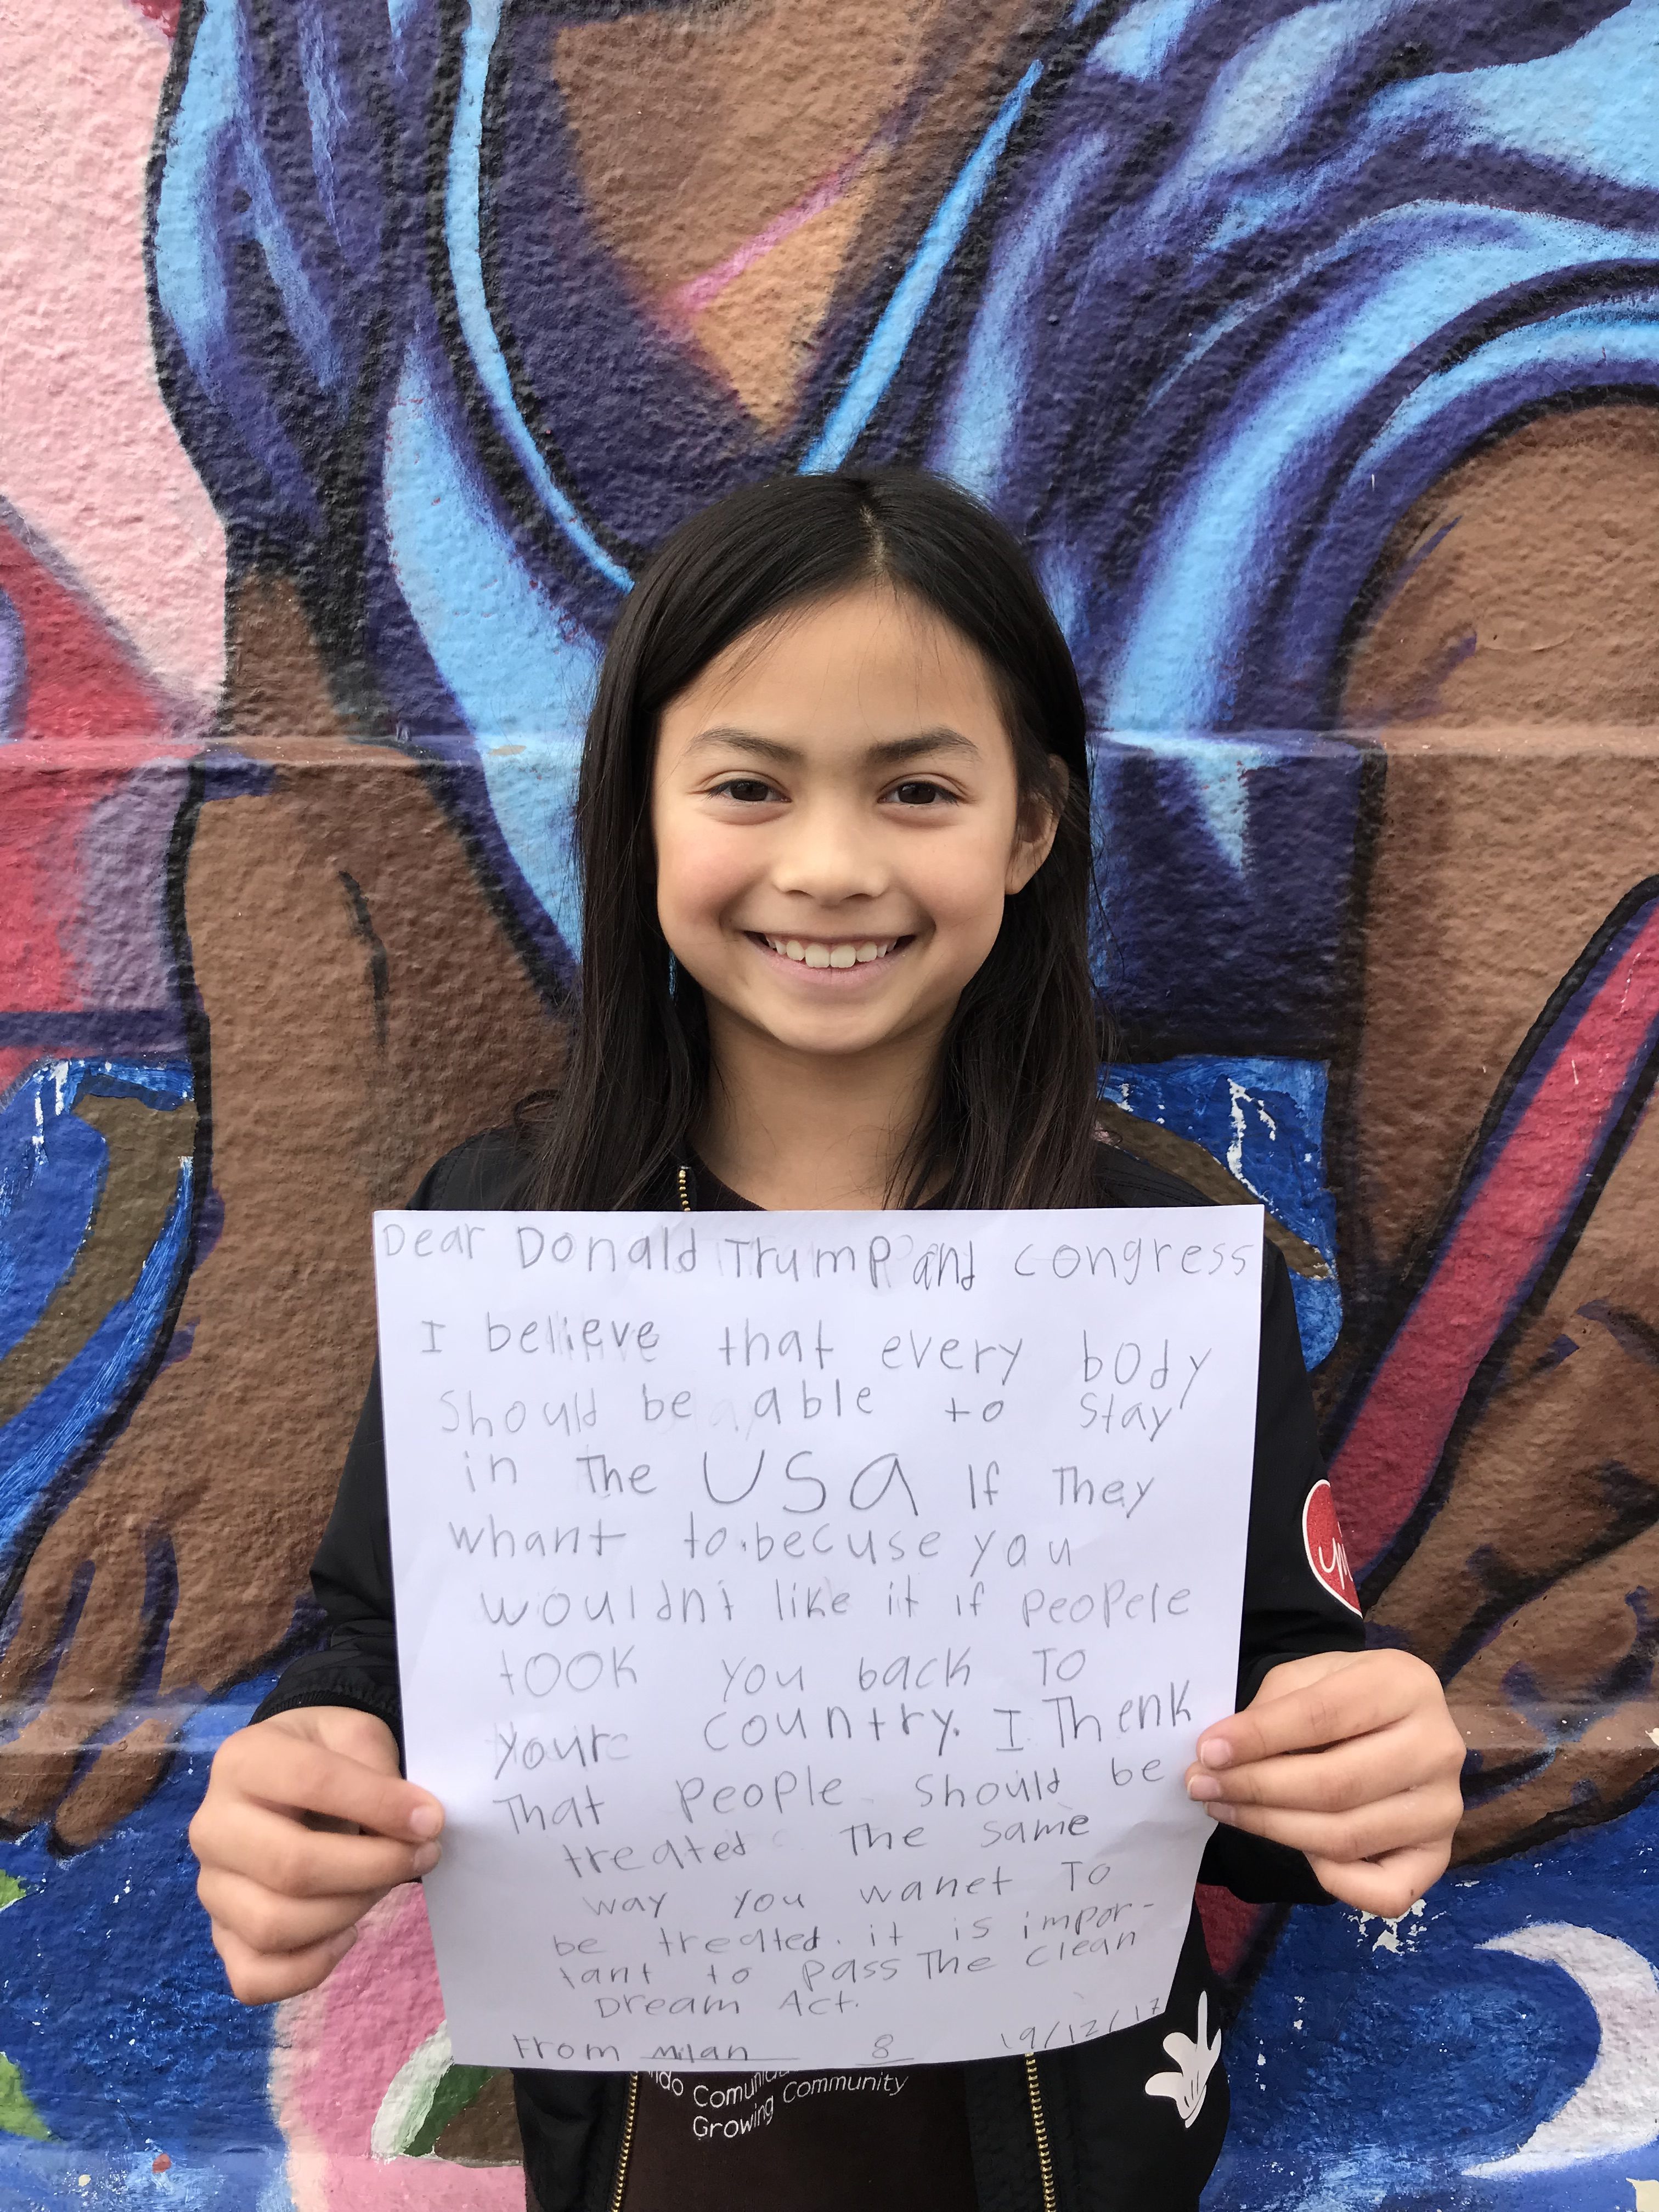 Dear Donald Trump and congress
I believe that every body
should be able to stay
in The USA If They
whant to. becuse you
wouldnt like it if peopele
took you back To
your country. I Thenk
That people should be
treated The same
way you wanet To
be treated. it is impor-
tant to pass The clean
Dream Act.
From milan 8 19/12/17
Growing Community